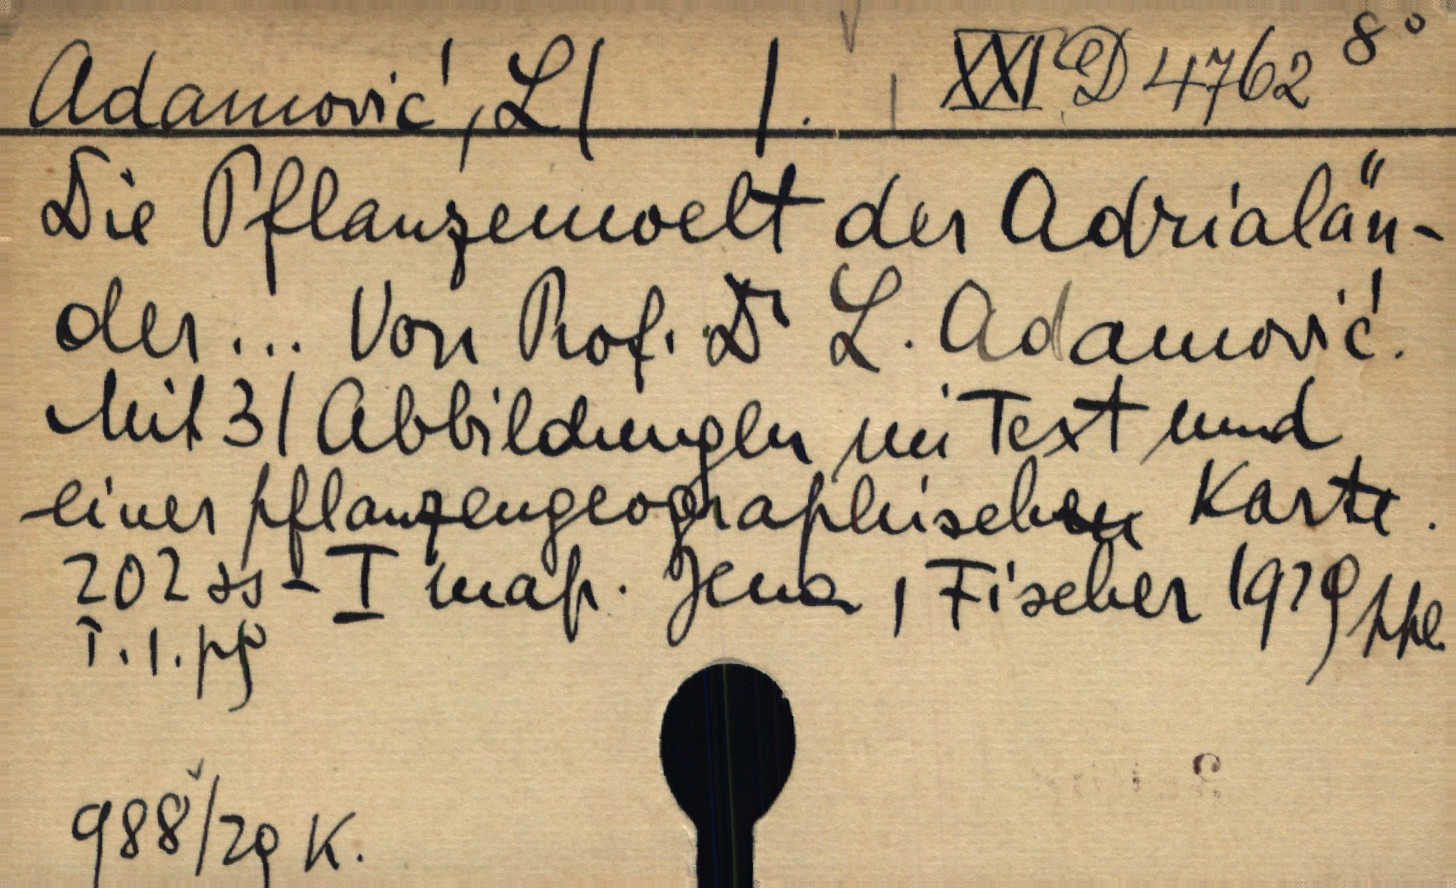 Adamović, L( ). XXI D 4762 8°
Die Pflanzenwelt der Adrialän-
der... Von Prof. Dr L. Adamović.
Mit 31 Abbildungen im Text und
einer pflanzengeographischen Karte.
202 ss - I map. Jena, Fischer 1929 ppl.
1. 1. pß
988/29 K.